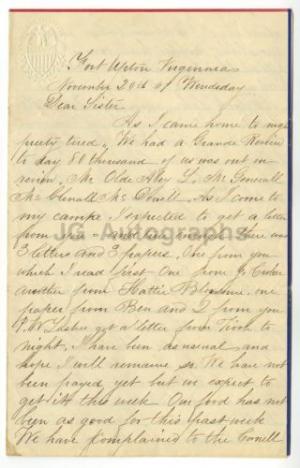 Fort Upton Virginnia
November 20th 61 Wensday
Dear Sister
As I came home to nigh
pretty tired We had a Grande Review
to day 80 thousand of us was out in
review. Mr Olde Abey L. Mc Generall
Mc Clenall Mc Dowell. As I come to
my campe I expected to get a letter
from
3 letters and 3 papers. One from you
which I read first One from J.
another from Hattie one
paper from Ben and 2 from you
got a letter from to
night. I have been as usual and
hope I will remaine so We have not
been payed yet but we expect to
get itt this week Our food has not
been as good for this past week
We have complained to the Cornell
JG Autographs